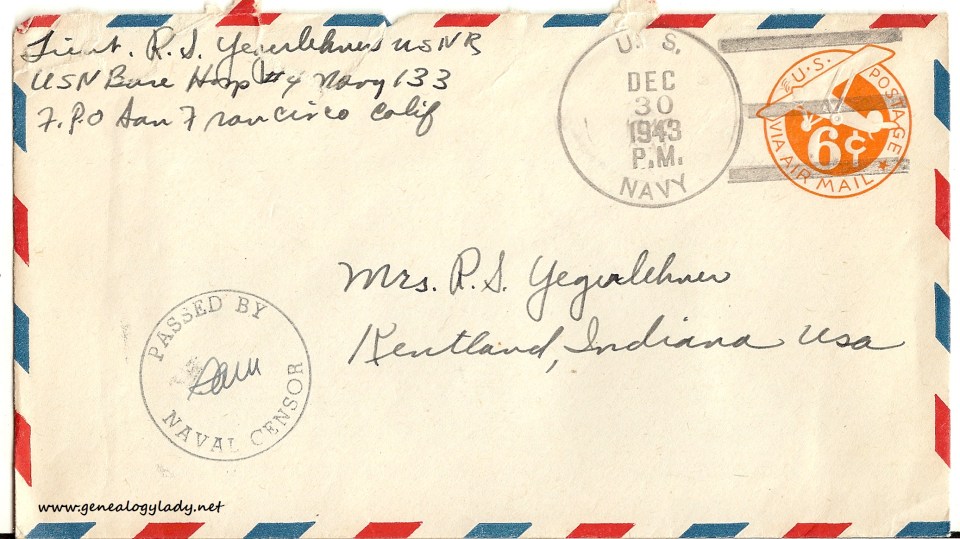 Lieut. R. S. Yegerlehner USNR
USN Base Hosp #4 Navy 133
F.P.O San Francisco Calif
U. S.
DEC
30
1943
P.M.
NAVY
U.S. POSTAGE
6¢
VIA AIR MAIL
Mrs. R. S. Yegerlehner
Kentland, Indiana USA
PASSED BY
NAVAL CENSOR
www.genealogylady.net